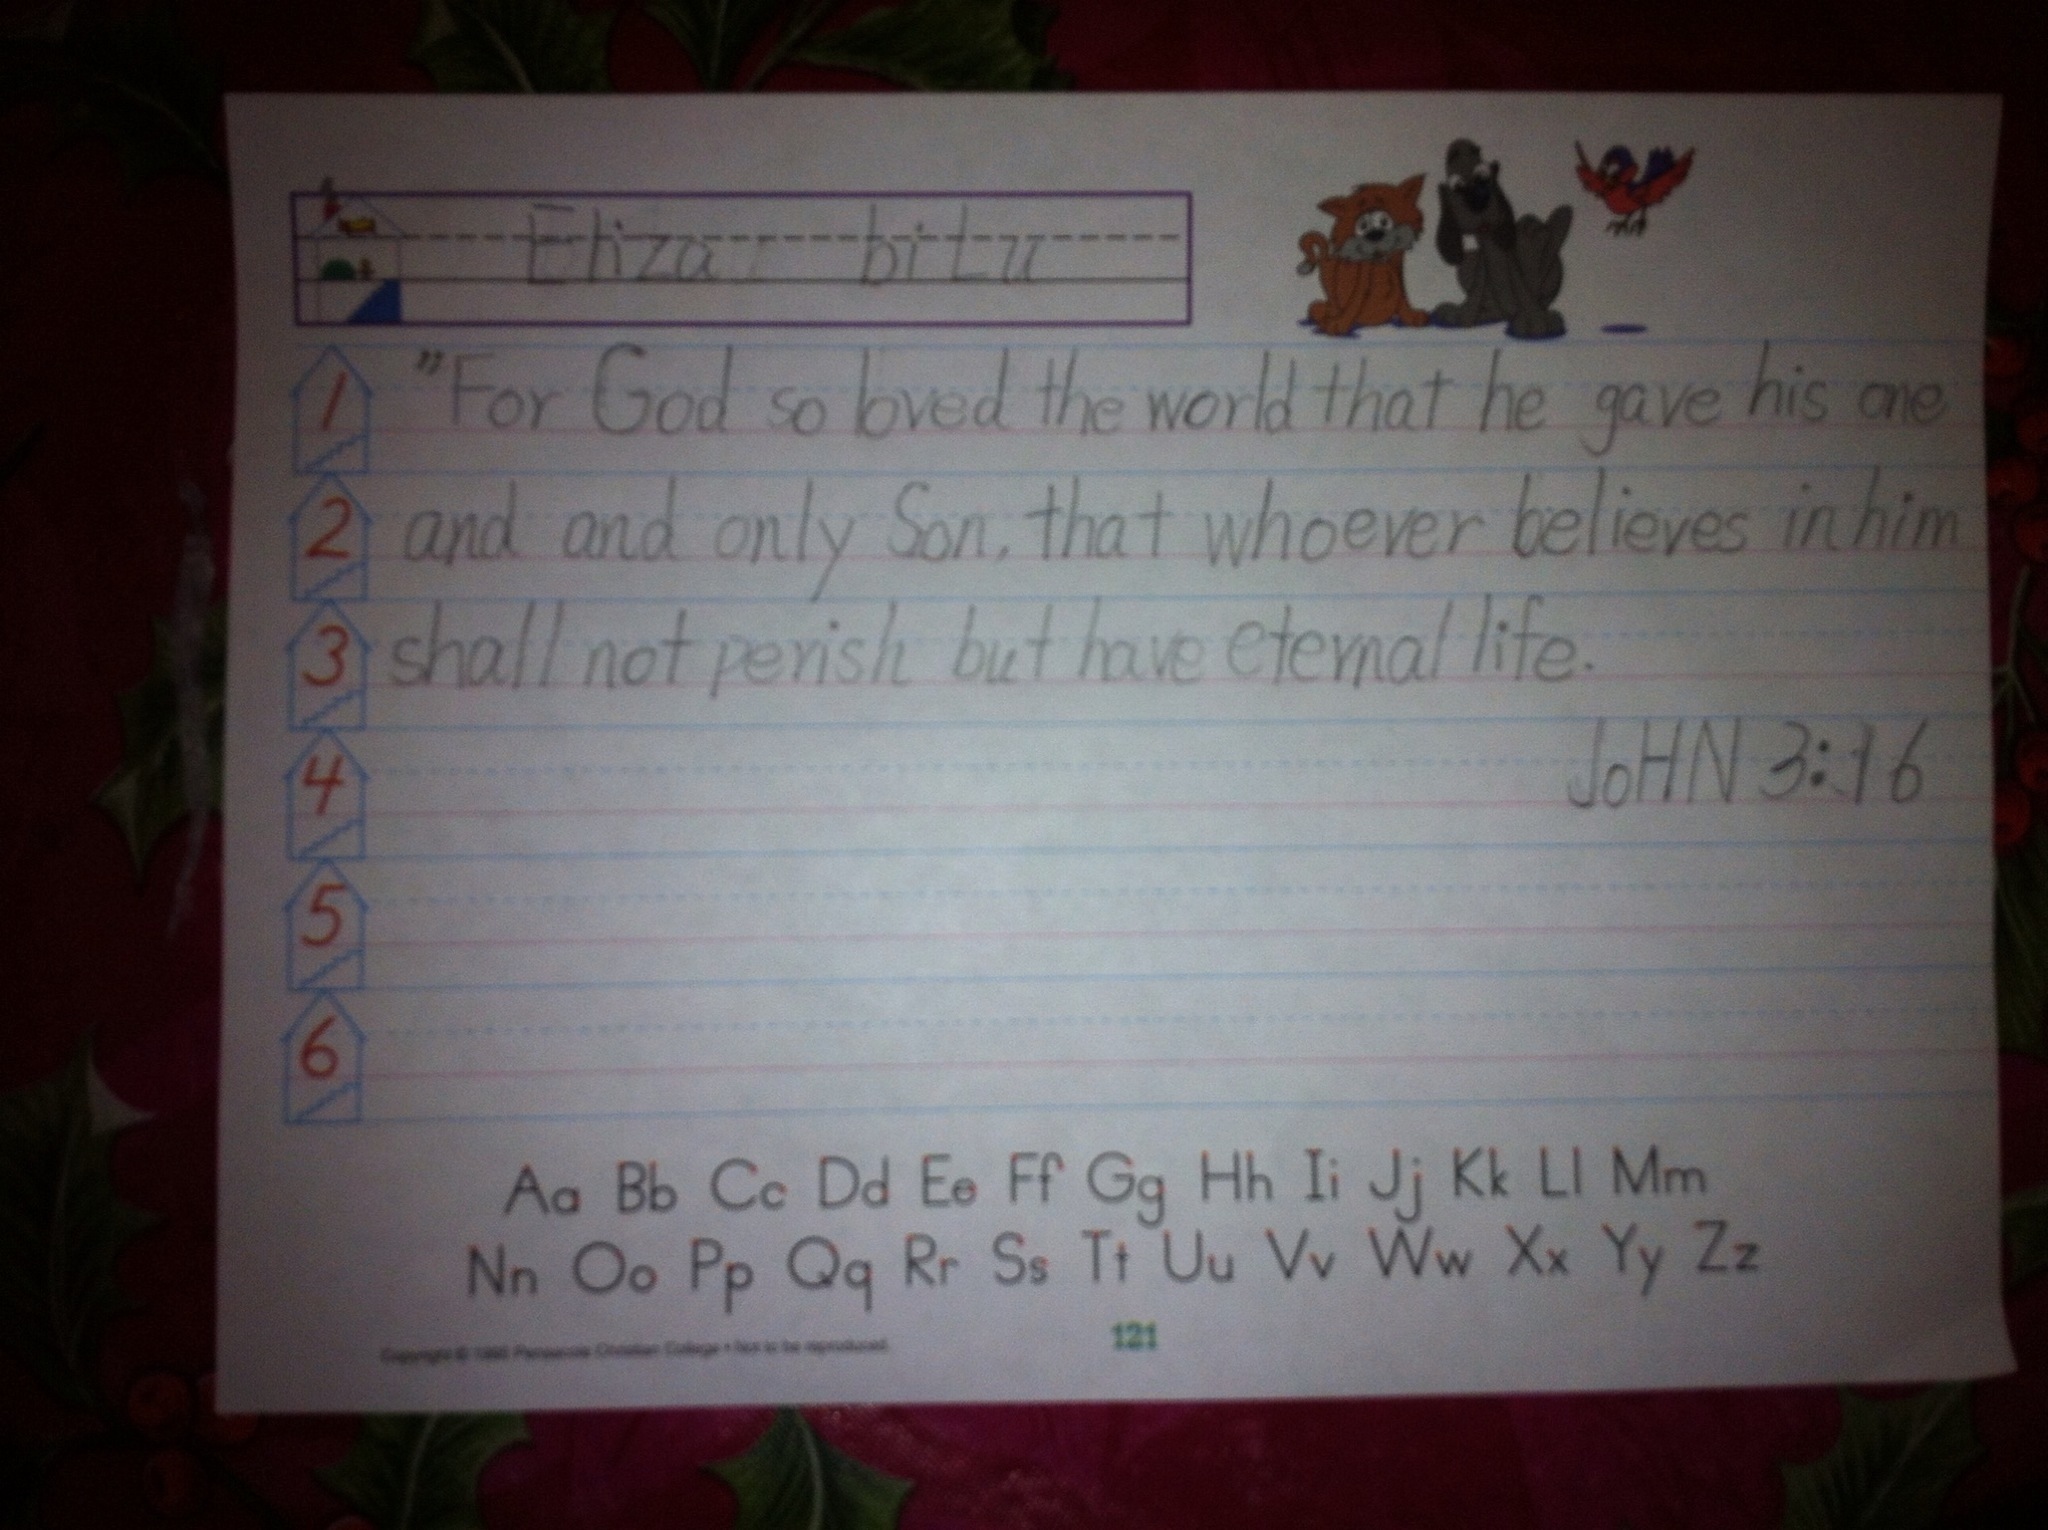 Eliza bitu
1 "For God so loved the world that he gave his one
2 and and only Son, that whoever believes in him
3 shall not perish but have eternal life.
4 JoHN 3:16
5
6
Aa Bb Cc Dd Ee Ff Gg Hh Ii Jj Kk Ll Mm
Nn Oo Pp Qq Rr Ss Tt Uu Vv Ww Xx Yy Zz
Copyright © Pensacola Christian College • Not to be reproduced.
121